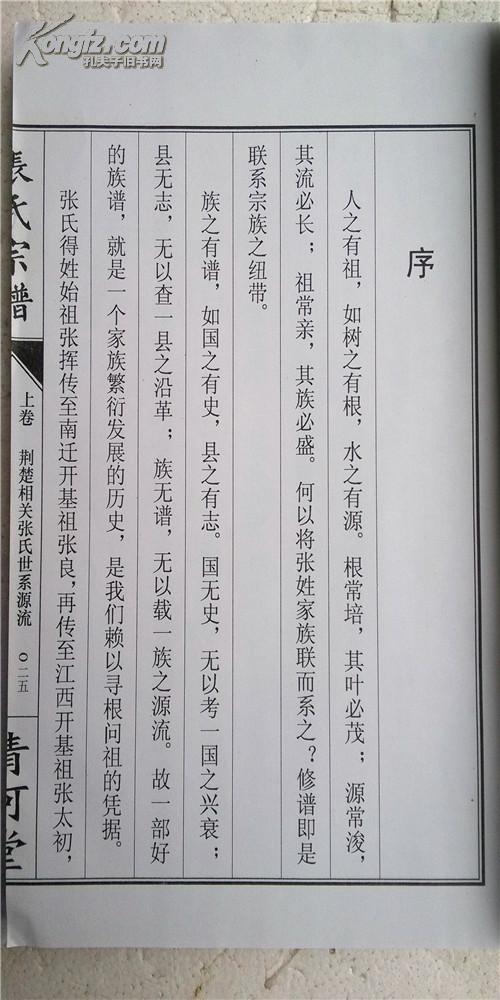 Kongfz.com
孔夫子旧书网
序
人之有祖，如树之有根，水之有源。根常培，其叶必茂；源常浚，
其流必长；祖常亲，其族必盛。何以将张姓家族联而系之？修谱即是
联系宗族之纽带。
族之有谱，如国之有史，县之有志。国无史，无以考一国之兴衰；
县无志，无以查一县之沿革；族无谱，无以载一族之源流。故一部好
的族谱，就是一个家族繁衍发展的历史，是我们赖以寻根问祖的凭据。
张氏得姓始祖张挥传至南迁开基祖张良，再传至江西开基祖张太初，
張氏宗譜
上卷 荆楚相关张氏世系源流 〇二五
清河堂